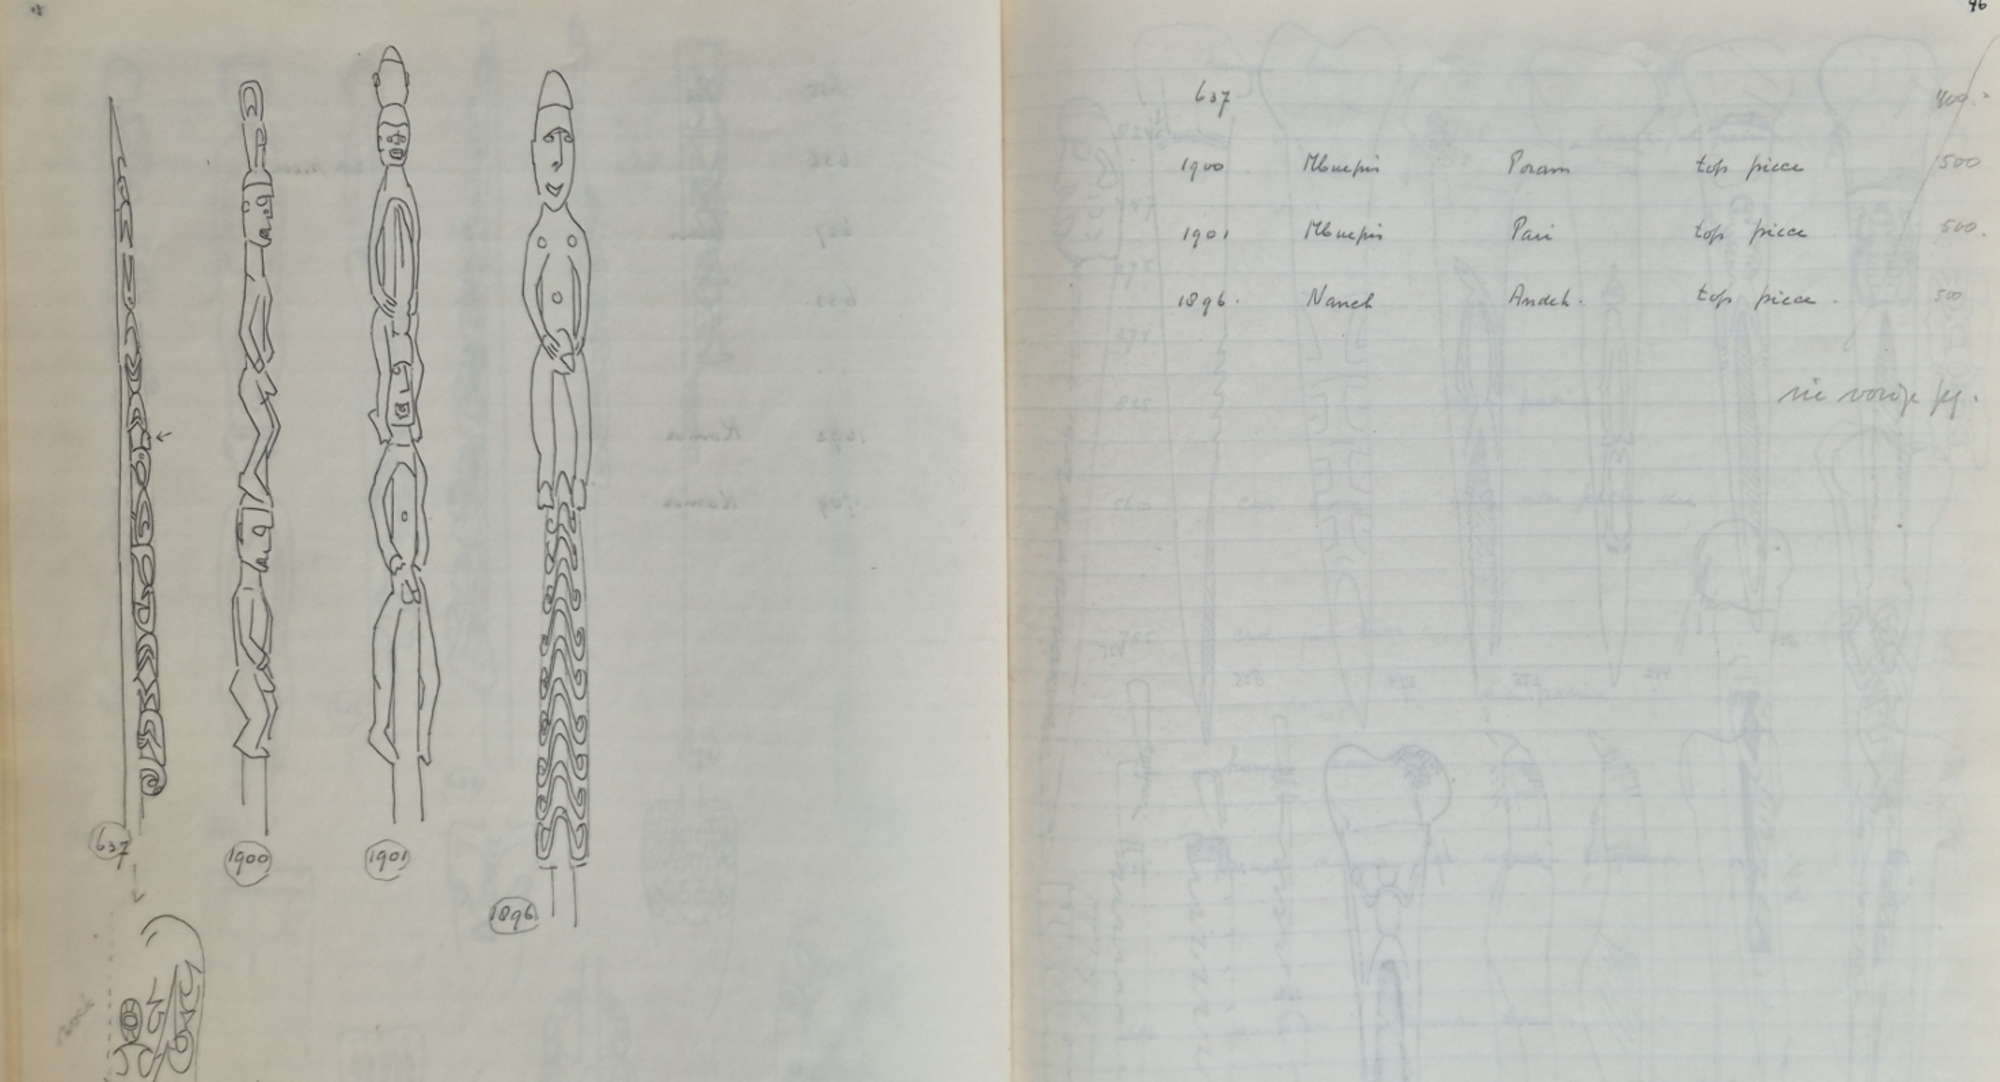 637
1900
1901
1896
46
637 400.-
1900 Mbuepis Poram top piece 500
1901 Mbuepis Pari top piece 500.
1896. Naneh Andeh. top piece. 500
zie vorige pg.